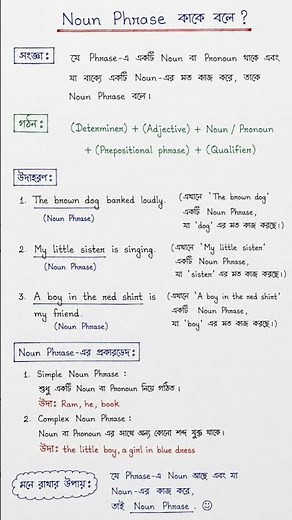 Noun Phrase কাকে বলে ?
সংজ্ঞা :
যে Phrase-এ একটি Noun বা Pronoun থাকে এবং
যা বাক্যে একটি Noun-এর মত কাজ করে, তাকে
Noun Phrase বলে।
গঠন :
(Determiner) + (Adjective) + Noun / Pronoun
+ (Prepositional phrase) + (Qualifier)
উদাহরণ :
1. The brown dog barked loudly.
(Noun Phrase)
(এখানে 'The brown dog'
একটি Noun Phrase,
যা 'dog' এর মত কাজ করছে।)
2. My little sister is singing.
(Noun Phrase)
(এখানে 'My little sister'
একটি Noun Phrase,
যা 'sister' এর মত কাজ করছে।)
3. A boy in the red shirt is
my friend.
(Noun Phrase)
(এখানে 'A boy in the red shirt'
একটি Noun Phrase,
যা 'boy' এর মত কাজ করছে।)
Noun Phrase-এর প্রকারভেদ :
1. Simple Noun Phrase :
শুধু একটি Noun বা Pronoun নিয়ে গঠিত।
উদা: Ram, he, book
2. Complex Noun Phrase :
Noun বা Pronoun এর সাথে অন্য কোনো শব্দ যুক্ত থাকে।
উদা: the little boy, a girl in blue dress
মনে রাখার উপায় :
যে Phrase-এ Noun আছে এবং যা
Noun-এর কাজ করে,
তাই Noun Phrase. ☺